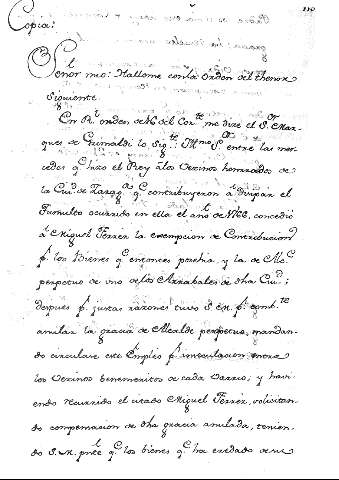 110
Copia:
Señor mio: Hallome con la Orden del thenor
siguiente
En Rl orden de 16 del Corte me dice el Sor Mar-
ques de Grimaldi lo sigte: Illmo Sor entre las mer-
cedes qe hizo el Rey á los Vecinos honrrados de
la Ciud. de Zaragza qe contribuyeron á disipar el
Tumulto ocurrido en ella el año de 1766, concedió
á Miguel Ferrer la exempcion de Contribucion
pr los Bienes qe entonces posehia, y la de Alce
perpetuo de uno de los Arrabales de dha Ciud.;
despues pr justas razones tuvo S. M. pr combte
anular la gracia de Alcalde perpetuo, mandan-
do circulase este Empleo pr insaculacion entre
los Vecinos benemeritos de cada Varrio; y havi-
endo recurrido el citado Miguel Ferrer, solicitan-
do compensacion de dha gracia anulada, tenien-
do S. M. prste qe los bienes qe ha eredado de su